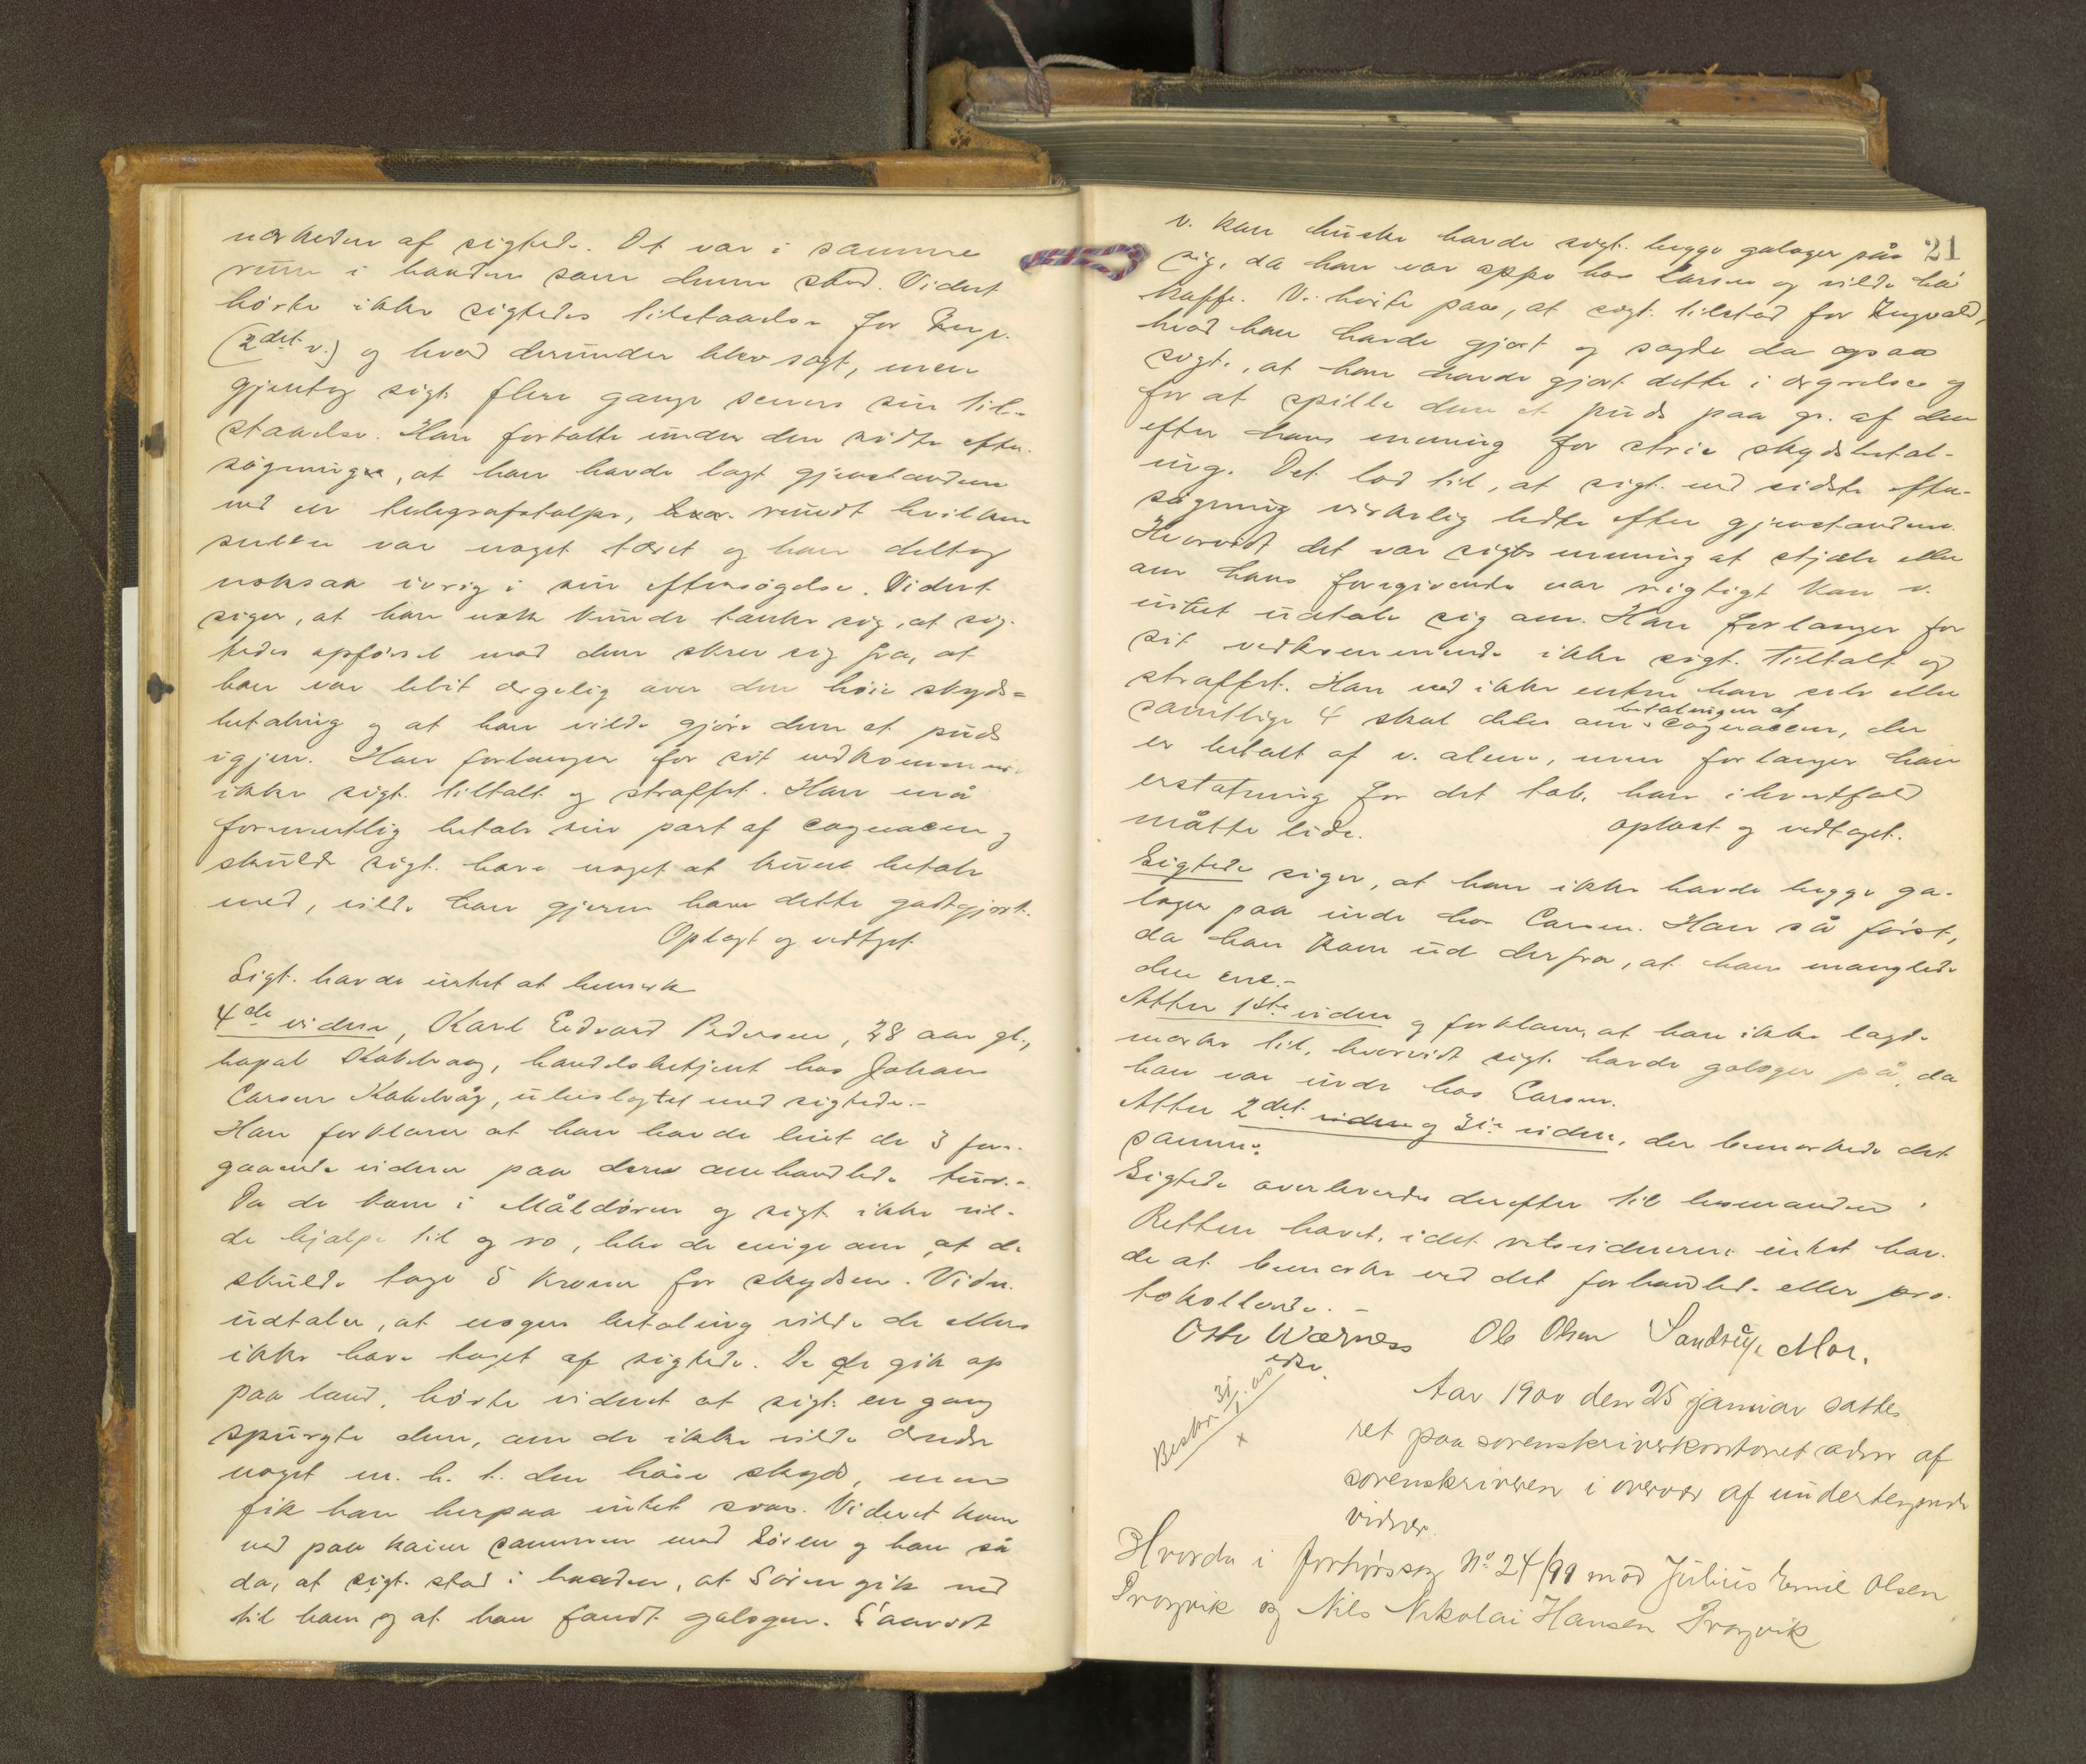 nærheden af sigtede. Det var i samme
rum i baaden som denne stod. Vidnet
hørte ikke sigtedes tilstaaelse for Ing.
(2det v.) og hvad derunder blev sagt, men
gjentog sigt. flere gange senere sin til-
staaelse. Han fortalte under den sidste efter-
søgning, at han havde lagt gjenstandene
ved en telegrafstolpe, rundt hvilken
sneen var noget tæret og han deltog
noksaa ivrig i sin eftersøgelse. Vidnet
siger, at han nok kunde tænke sig, at sig-
tedes opførsel mod dem skrev sig fra, at
han var blit ærgelig over den høie skyds-
betaling og at han vilde gjøre dem et puds
igjen. Han forlanger for sit vedkommende
ikke sigt. tiltalt og straffet. Han må
formentlig betale sin part af cognacen og
skulde sigt. have noget at kunne betale
med, vilde han gjerne have dette godtgjort.
Oplæst og vedtaget.
Sigt. havde intet at bemærke
4de vidne, Karl Edvard Pedersen, 28 aar gl.,
bopæl Kabelvaag, handelsbetjent hos Johan
Larsen Kabelvåg, ubeslægtet med sigtede.-
Han forklarer at han havde leiet de 3 fore-
gaaende vidner paa den omhandlede tur.-
Da de kom i Måldøren og sigt. ikke vil-
de hjælpe til og ro, blev de enige om, at de
skulde tage 5 kroner for skydsen. Vidn.
udtaler, at nogen betaling vilde de ellers
ikke have taget af sigtede. Da de gik op
paa land, hørte vidnet at sigt. en gang
spurgte dem, om de ikke vilde ændre
noget m. h. t. den høie skyds, men
fik han herpaa intet svar. Vidnet kom
ned paa kaien sammen med Søren og han så
da, at sigt. stod i baaden, at Søren gik ned
til ham og at han fandt galogen. Saavidt
21
v. kan huske havde sigt. begge galoger på
sig, da han var oppe hos Larsen og vilde ha
kaffe. V. hørte paa, at sigt. tilstod for Ingvald,
hvad han havde gjort og sagde da ogsaa
sigt., at han havde gjort dette i ærgrelse og
for at spille dem et puds paa gr. af den
efter hans mening for strie skydsbetal-
ing. Det lod til, at sigt. ved sidste efter-
søgning virkelig ledte efter gjenstandene.
Hvorvidt det var sigtes mening at stjæle eller
om hans foregivende var rigtigt kan v.
intet udtale sig om. Han forlanger for
sit vedkommende ikke sigt. tiltalt og
straffet. Han ved ikke enten han selv eller
samtlige 4 skal deles om betalingen af cognacen, der
er betalt af v. alene, men forlanger han
erstatning for det tab, han ihvertfald
måtte lide.
oplæst og vedtaget.
Sigtede siger, at han ikke havde begge ga-
loger paa inde hos Larsen. Han så først,
da han kom ud derfra, at han manglede
den ene.-
Atter 1ste vidne og forklarer, at han ikke lagde
mærke til, hvorvidt sigt. havde galoger på, da
han var inde hos Larsen.
Atter 2det vidne og 3die vidne, der bemærkede det
samme.
Sigtede overleverdes derefter til lensmanden
Retten hævet, idet retsvidnerne intet hav-
de at bemærke ved det forhandlede eller pro-
tokollerede.-
Otto Wærness
edsv.
Ole Olsen Sandvig Mor.
Beskr. 31/1.00
x
Aar 1900 den 25 januar sattes
ret paa sorenskriverkontoret adm af
sorenskriveren i overvær af undertegnede
vidner.
Hvorda i forhørssag No 24/99 mod Julius Emil Olsen
Drogvik og Nils Nikolai Hansen Drogvik